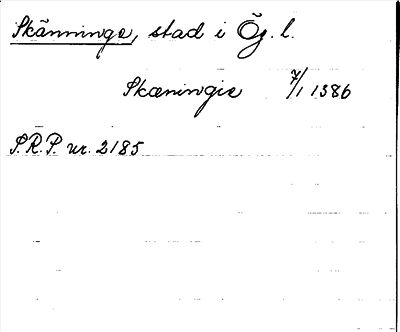 Skänninge, stad i Ög. l.
Skæningie 7/1 1386
S.R.P. nr. 2185